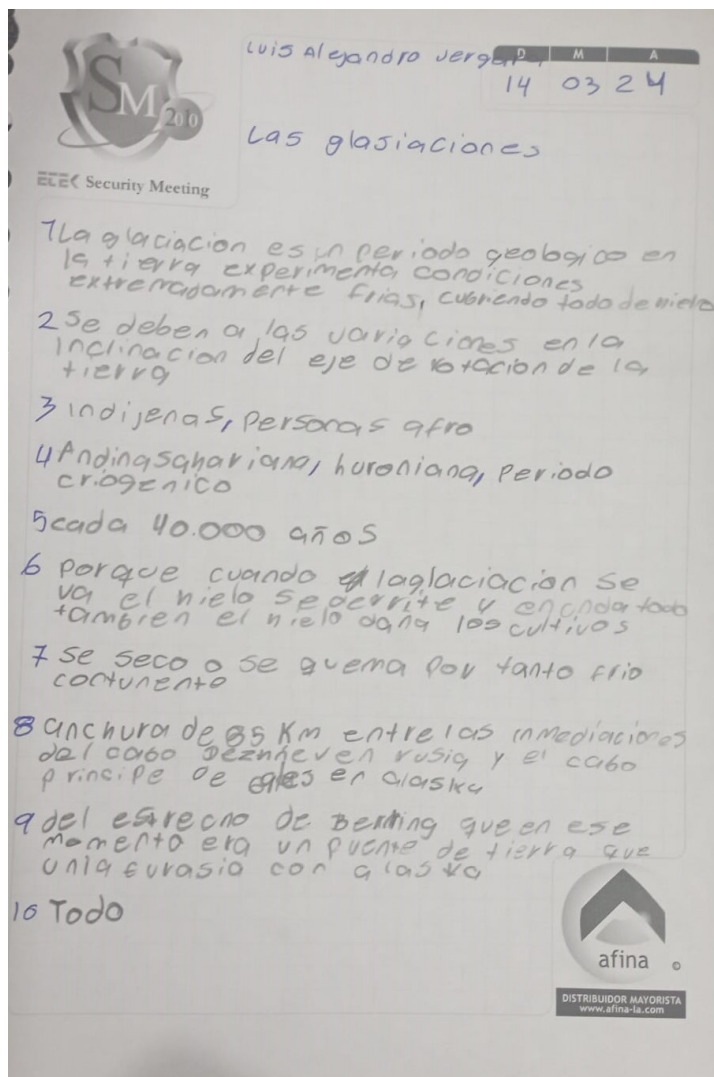 Luis Alejandro Vergara
D M A
14 03 24
SM
2010
Las glasiaciones
ETEK Security Meeting
1 La glaciacion es un periodo geologico en
la tierra experimenta condiciones
extremadamente frias, cubriendo todo de nielo
2 Se deben a las variaciones en la
inclinacion del eje de rotacion de la
tierra
3 indijenas, personas afro
4 Andinasahariana, huroniana, periodo
criogenico
5 cada 40.000 años
6 porque cuando la glaciacion se
va el nielo se derrite y enonda todo
tambien el nielo daña los cultivos
7 se seco o se quema por tanto frio
contunento
8 anchura de 85 Km entre las inmediaciones
del cabo Dezhneven rusia y el cabo
principe de gales en alaska
9 del estrecho de Bering que en ese
momento era un puente de tierra que
unia eurasia con alaska
10 Todo
afina
DISTRIBUIDOR MAYORISTA
www.afina-la.com